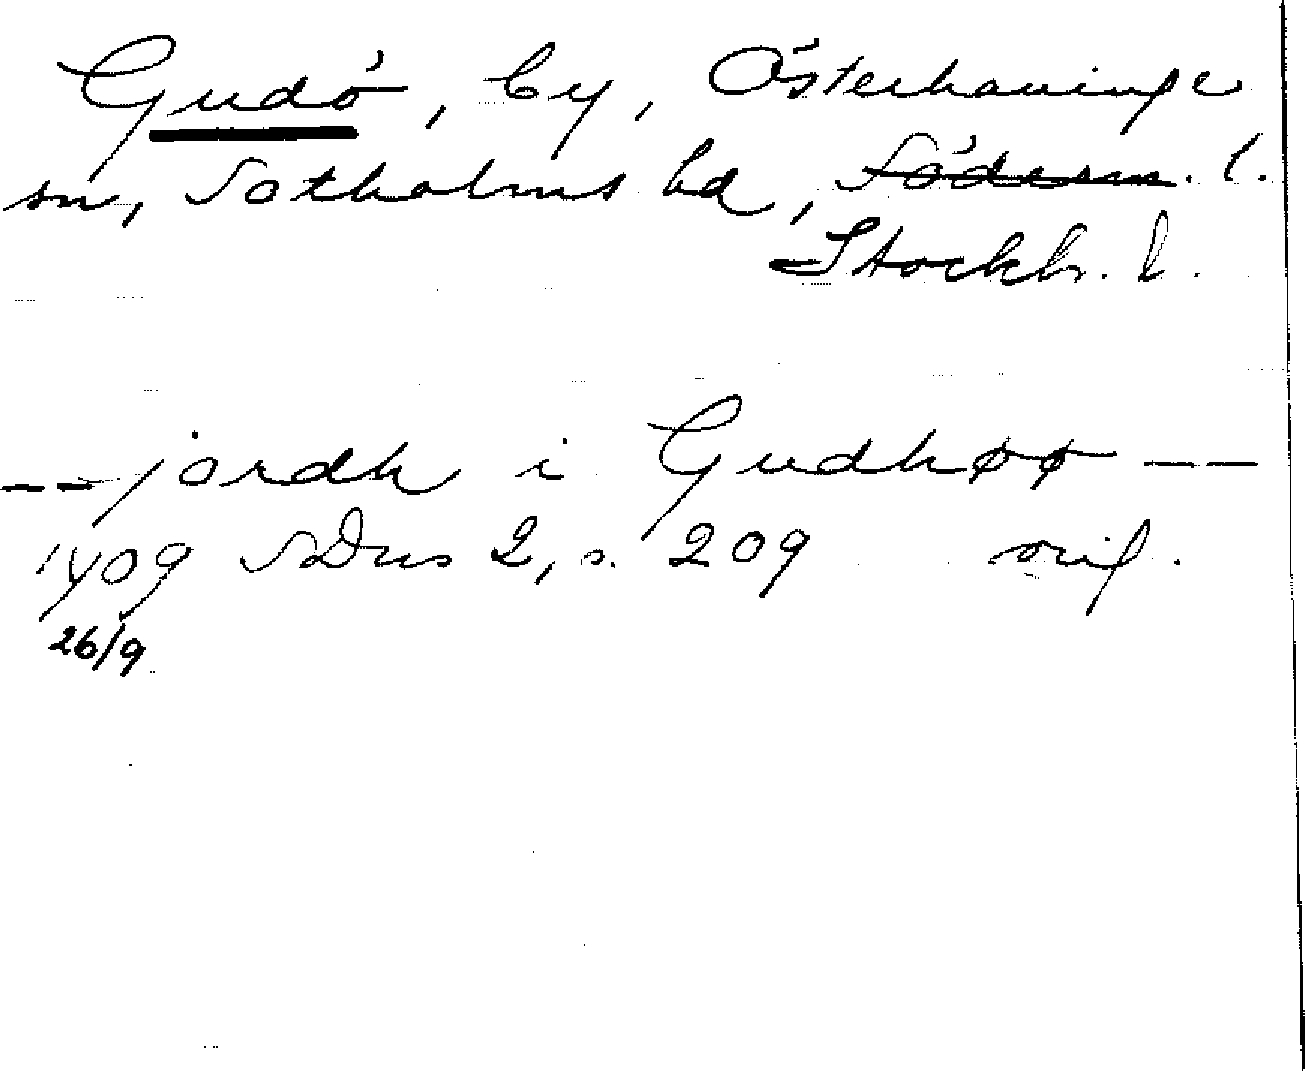 Gudö, by, Österhaninge
sn, Sotholms hd, Söderm. l.
Stockh. l.
-- jordh i Gudhøø --
1409 SDns 2, s. 209 orig.
26/9